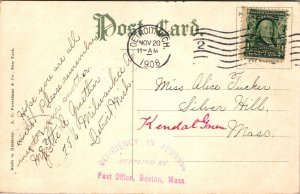 Post Card.
DETROIT, MICH.
NOV 20
11-AM
1908
2
Hope you are all
well. Please remember
me to your
mother and
Mrs. Etta
758 Milwaukee Av
Detroit Mich.
Miss Alice Tucker
Silver Hill
Kendal Green
Mass.
DEFICIENCY IN ADDRESS
SUPPLIED BY
Post Office, Boston, Mass
Made in Germany. A. C. Bosselman & Co., New York.